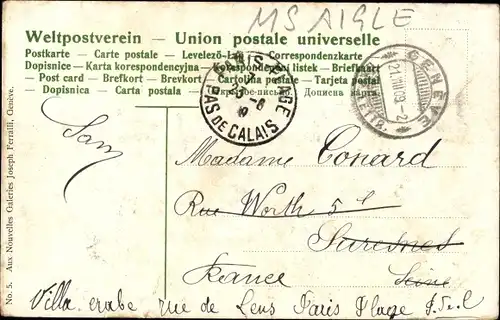 MS AIGLE
Weltpostverein – Union postale universelle
Postkarte – Carte postale – Levelező-Lap – Correspondenzkarte
Dopisnice – Karta korespondencyjna – Korespondenčni listek – Briefkaart
Post card – Brefkort – Brevkort – Cartolina postale – Tarjeta postal
Dopisnica – Carta postala – Открытое письмо. Дописна карта.
PAS DE CALAIS
GENÈVE
Madame Conard
Rue Worth 5
Suresnes
Seine
France
Villa rue de Lens Paris Plage P.d.C
No. 5. Aux Nouvelles Galeries Joseph Perralli, Genève.